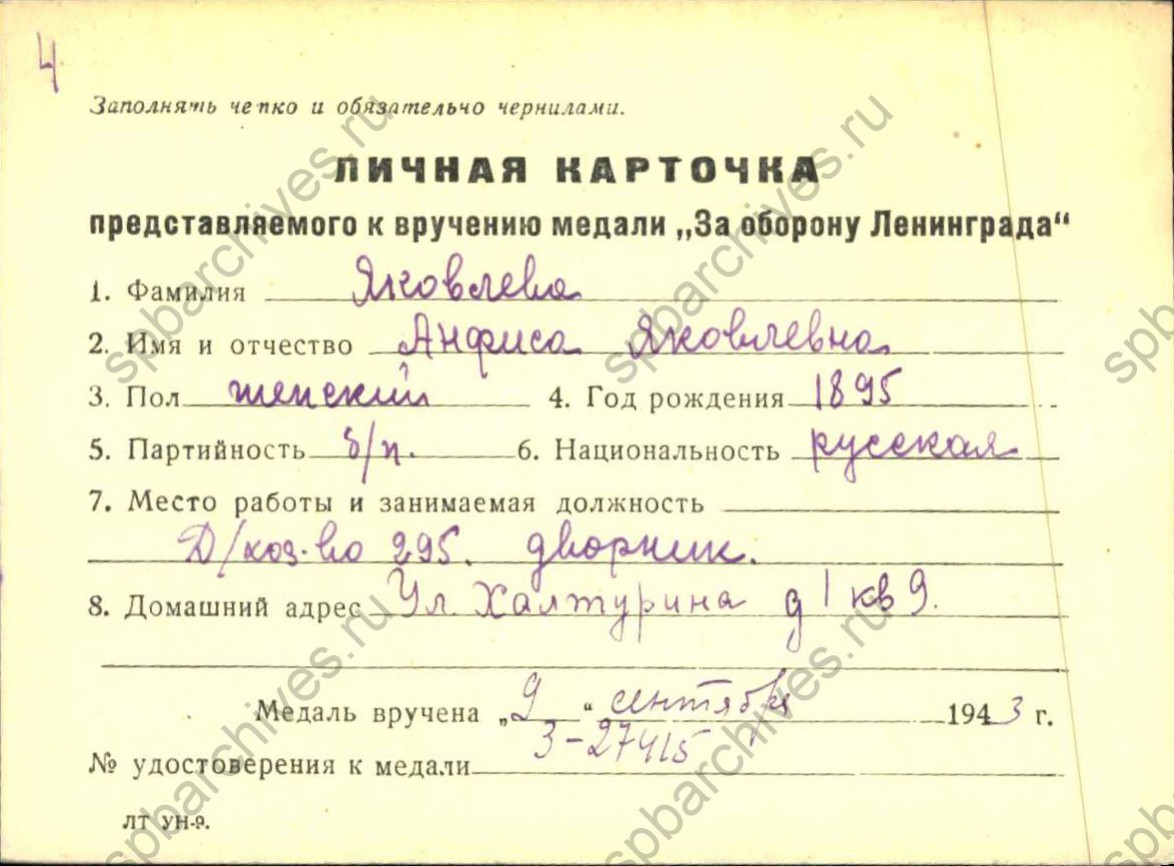 4
Заполнять четко и обязательно чернилами.
ЛИЧНАЯ КАРТОЧКА
представляемого к вручению медали „За оборону Ленинграда“
1. Фамилия Яковлева
2. Имя и отчество Анфиса Яковлевна
3. Пол женский 4. Год рождения 1895
5. Партийность б/п. 6. Национальность русская
7. Место работы и занимаемая должность
Д/хоз-во 295. дворник.
8. Домашний адрес Ул. Халтурина д 1 кв 9.
Медаль вручена „9“ сентября 1943 г.
№ удостоверения к медали З-27415
ЛТ УН-э.
spbarchives.ru
spbarchives.ru
spbarchives.ru
spbarchives.ru